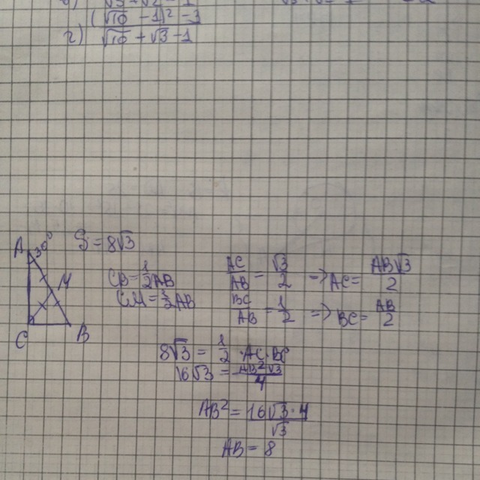 (√10 - 1)² - 3
г) √10 + √3 - 1
A
30°
S = 8√3
M
C
B
CB = 1/2 AB
CM = 1/2 AB
AC/AB = √3/2 => AC = AB√3/2
BC/AB = 1/2 => BC = AB/2
8√3 = 1/2 · AC · BC
16√3 = AB²√3/4
AB² = 16√3 · 4/√3
AB = 8